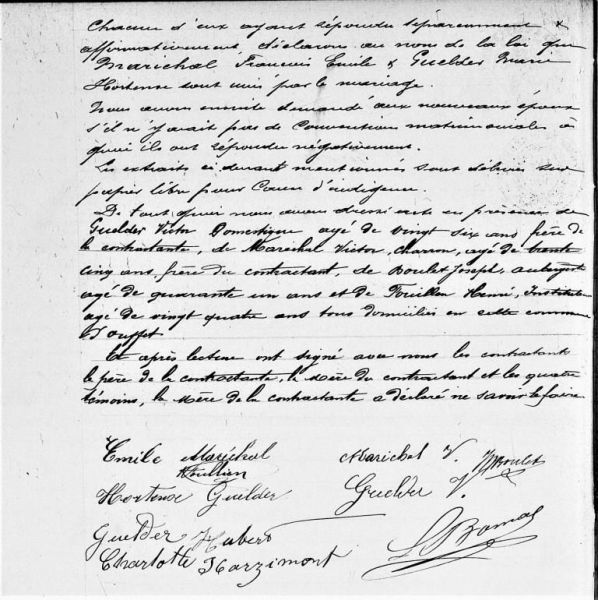 Chacun d'eux ayant répondu séparemment &
affirmativement, déclarons au nom de la loi que
Maréchal François Emile & Guelder Marie
Hortense sont unis par le mariage.
Nous avons ensuite demandé aux nouveaux époux
s'il n'y avait pas de Convention matrimoniale à
quoi ils ont répondu négativement.
Les extraits ci devant mentionnés sont délivrés sur
papier libre pour Cause d'indigence.
De tout quoi nous avons dressé acte en présence de
Guelder Victor Domestique agé de vingt six ans frère de
la contractante, de Marechal Victor, charron, agé de trente
cinq ans, frère du contractant, de Boulet Joseph, aubergiste
agé de quarante un ans et de Fouillen Henri, Instituteur
agé de vingt quatre ans tous domiciliés en cette commune
d'Ouffet
Et après lecture ont signé avec nous les contractants
le père de la contractante, la mère du contractant et les quatre
témoins, la mère de la contractante a déclaré ne savoir le faire
Emile Maréchal Maréchal V. Boulet
Hortense Guelder Guelder V.
Guelder Hubert
Charlotte Harzimont